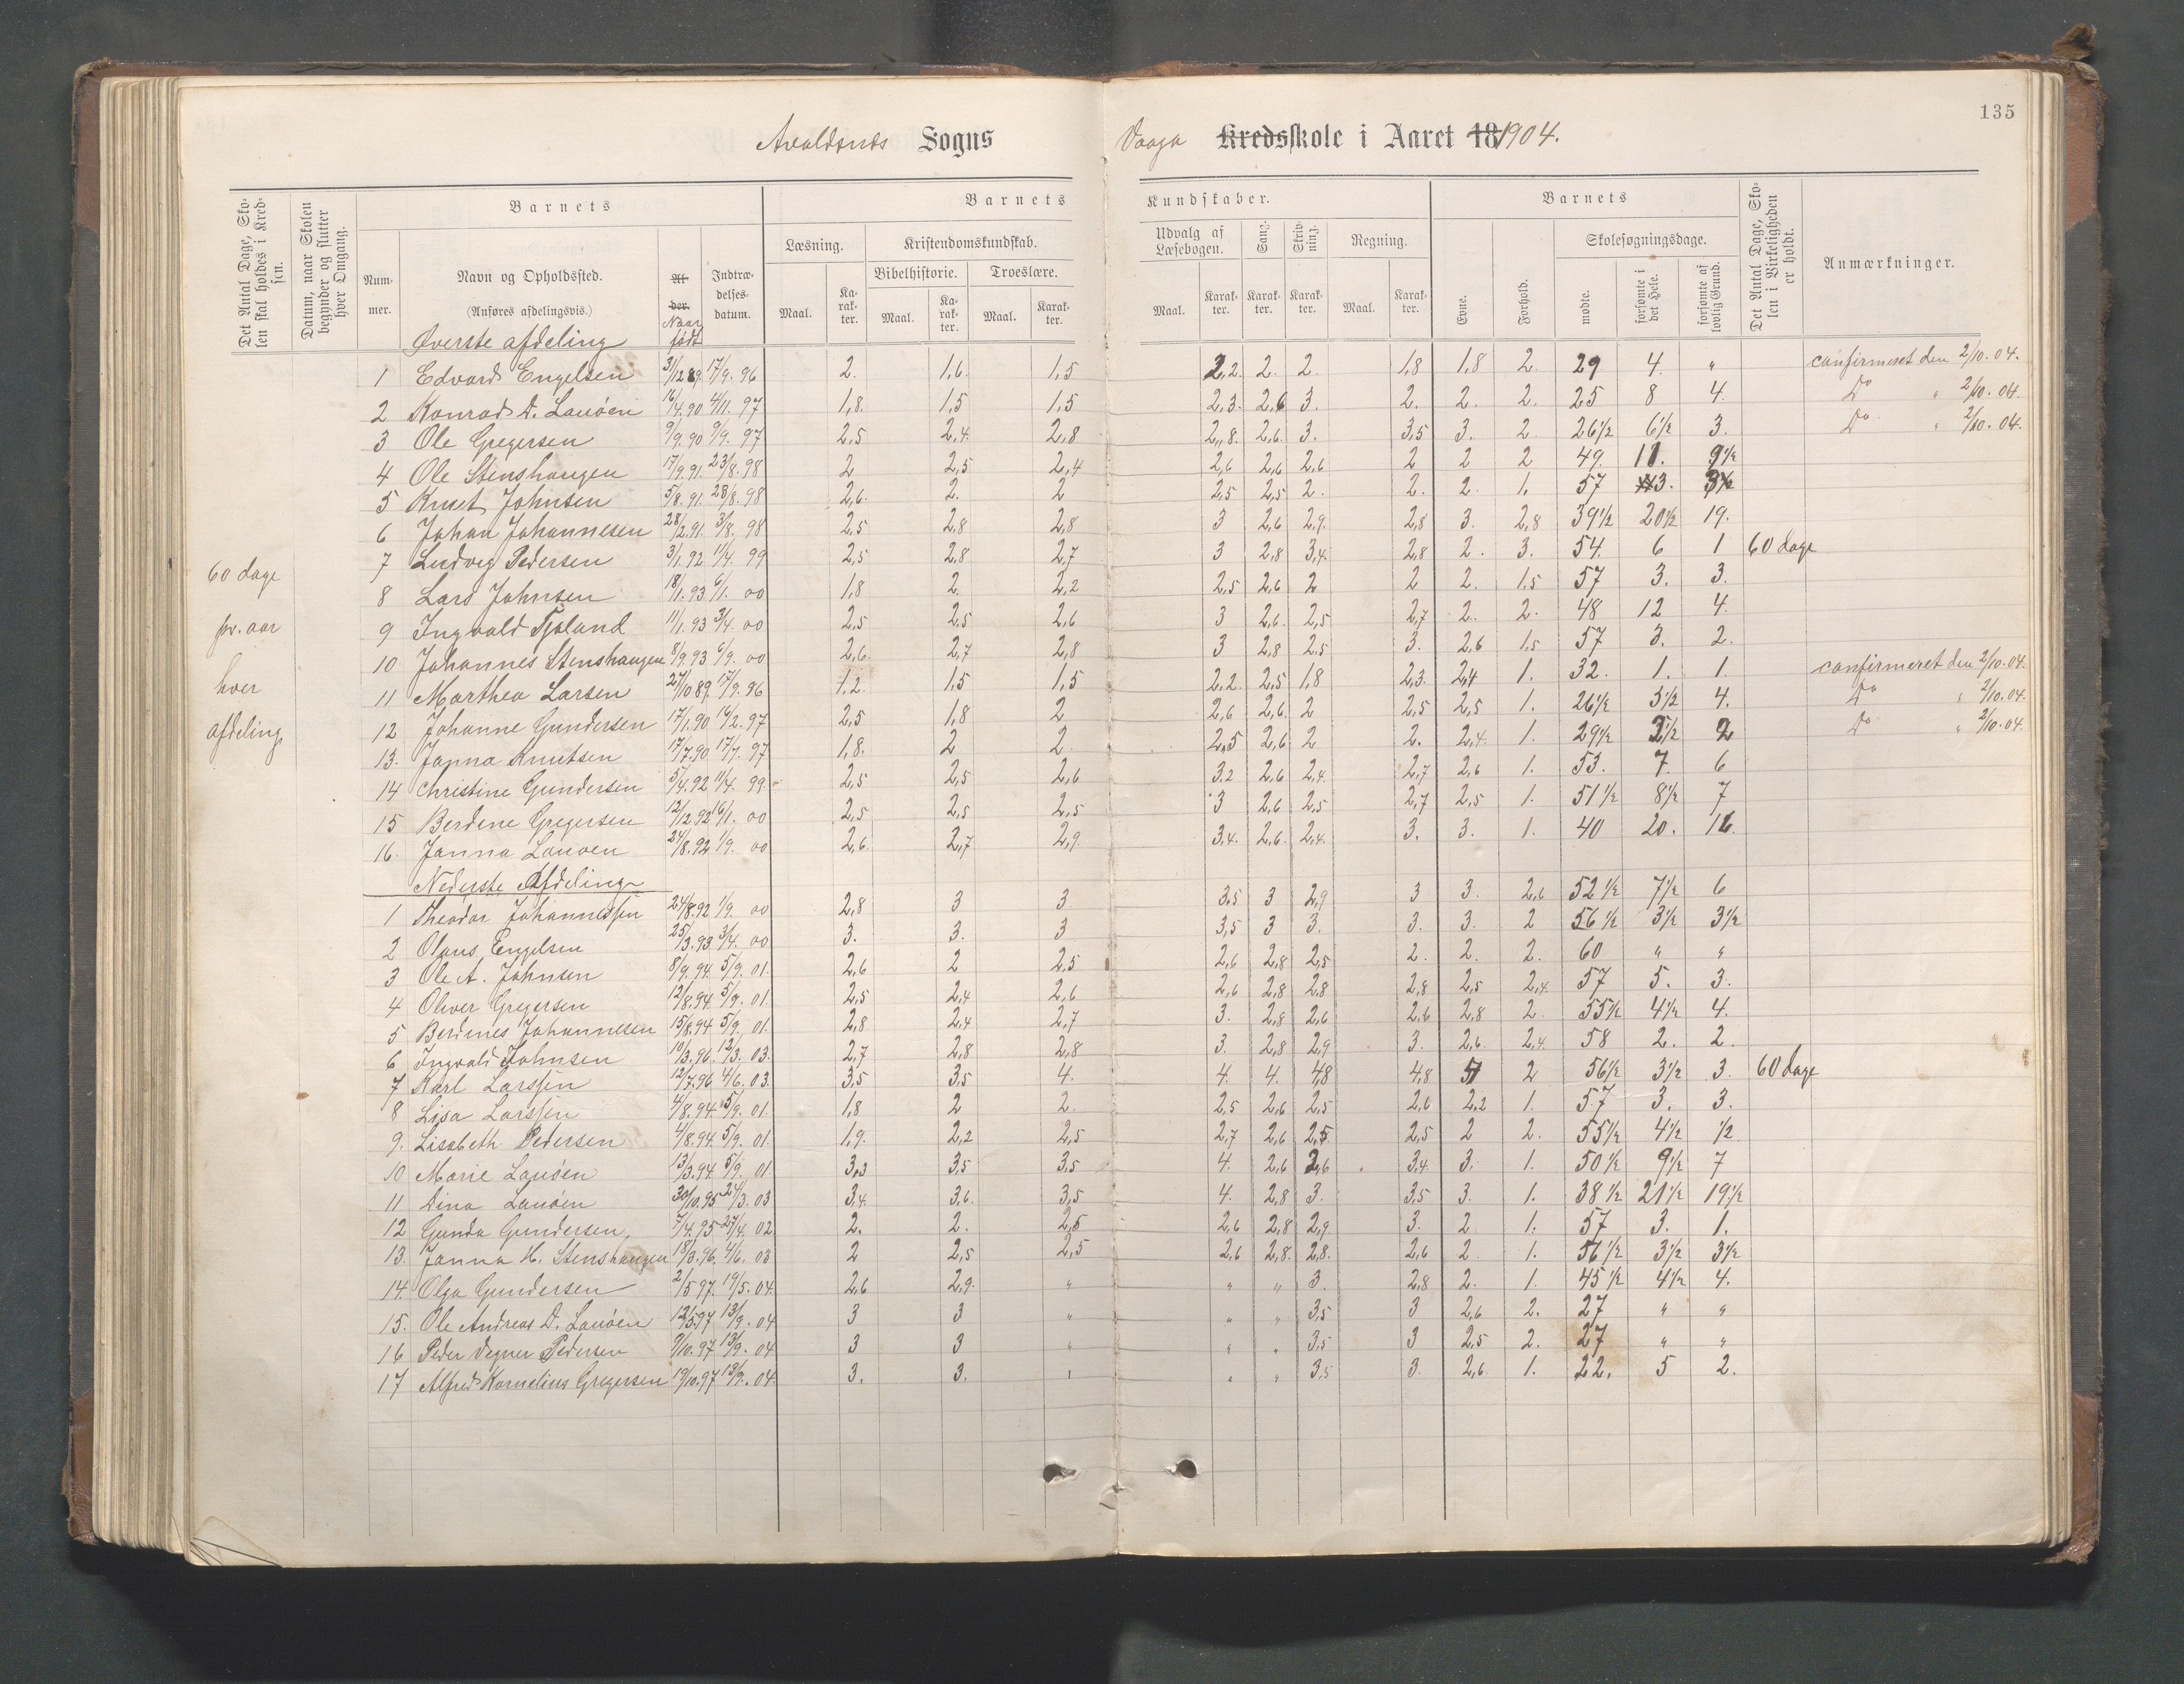 135
Avaldsnes Sogns Vaaga Kredsskole i Aaret 18 1904.
Det Antal Dage, Skolen skal holdes i Kredsen.
Datum, naar Skolen begynder og slutter hver Omgang.
Barnets
Nummer.
Navn og Opholdssted.
(Anføres afdelingsvis.)
Alder.
Naar født
Indtrædelsesdatum.
Barnets Kundskaber.
Læsning.
Maal. Karakter.
Kristendomskundskab.
Bibelhistorie. Troeslære.
Maal. Karakter. Maal. Karakter.
Udvalg af Læsebogen.
Maal. Karakter.
Sang.
Karakter.
Skrivning.
Karakter.
Regning.
Maal. Karakter.
Barnets
Evne.
Forhold.
Skolesøgningsdage.
mødte.
forsømte i det Hele.
forsømte af lovlig Grund.
Det Antal Dage, Skolen i Virkeligheden er holdt.
Anmærkninger.
60 dage
pr. aar
hver
afdeling
Øverste afdeling
1 Edvard Engelsen 31/12 89. 17/9. 96 2. 1,6. 1,5 2,2. 2. 2. 1,8 1,8 2. 29 4. " confirmeret den 2/10. 04.
2 Konrad D. Lauóen 16/4. 90 4/11. 97 1,8. 1,5 1,5 2,3. 2,6 3. 2. 2. 2. 25 8 4. Do " 2/10. 04.
3 Ole Gregersen 9/9. 90 9/9. 97 2,5 2,4. 2,8 2,8. 2,6. 3. 3,5 3. 2 26 1/2 6 1/2 3. Do " 2/10. 04.
4 Ole Stenshaugen 17/9. 91. 23/8. 98 2 2,5 2,4 2,6 2,6 2,6 2 2 2 49. 11. 9 1/2
5 Knut Johnsen 5/8. 91. 28/8. 98 2,6. 2. 2 2,5 2,5 2. 2. 2. 1. 57 3.
6 Johan Johannesen 28/2. 91. 3/8. 98 2,5 2,8 2,8 3 2,6 2,9. 2,8 3. 2,8 39 1/2 20 1/2 19.
7 Ludvig Pedersen 3/1. 92 1/4. 99 2,5 2,8 2,7 3 2,8 3,4. 2,8 2. 3. 54. 6 1 60 dage
8 Lars Johnsen 18/1. 93 6/1. 00 1,8 2. 2,2 2,5 2,6 2 2 2. 1,5 57 3. 3.
9 Ingvald Tjøland 11/1. 93 3/4. 00 2,5 2,5 2,6 3 2,6. 2,5 2,7 2. 2. 48 12 4.
10 Johannes Stenshaugen 8/9. 93 6/9. 00 2,6. 2,7 2,8 3 2,8 2,5 3. 2,6 1,5 57 3. 2.
11 Marthea Larsen 27/10 89. 17/9. 96 1,2. 1,5 1,5 2,2. 2,5 1,8 2,3. 2,4 1. 32. 1. 1. confirmeret den 2/10. 04.
12 Johanne Gundersen 17/1. 90 16/2. 97 2,5 1,8 2 2,6 2,6. 2 2,5 2,5 1. 26 1/2 3 1/2 4. Do " 2/10. 04.
13. Janna Knutsen 17/7. 90 17/7. 97 1,8. 2 2 2,5 2,6 2 2. 2,4. 1. 29 1/2 2 Do " 2/10. 04.
14 Christine Gundersen 5/4. 92 11/4. 99. 2,5 2,5 2,6 3.2 2,6 2,4. 2,7 2,6 1. 53. 7. 6
15 Berdine Gregersen 12/12. 92 16/1. 00 2,5 2,5 2,5 3 2,6 2,5 2,7 2,5 1. 51 1/2 8 1/2 7
16. Janna Lauoen 24/8. 92 1/9. 00 2,6. 2,7 2,9. 3,4. 2,6. 2,4. 3. 3. 1. 40 20. 16
Nederste Afdeling
1 Theodor Johannessen 24/8. 92 1/9. 00 2,8 3 3 3,5 3 2,9 3 3. 2,6 52 1/2 7 1/2 6
2 Olaus Engelsen 25/3. 93 3/4. 00 3. 3. 3 3,5 3 3. 3. 3. 2 56 1/2 3 1/2 3 1/2
3 Ole A. Johnsen 8/9. 94. 5/9. 01. 2,6 2 2,5 2,6 2,8 2,5 2. 2. 2. 60 " "
4 Oliver Gregersen 12/8. 94. 5/9. 01. 2,5 2,4 2,6 2,6 2,8 2,8 2,8 2,5 2,4. 57 5. 3.
5 Berdines Johannesen 15/8. 94 5/9. 01. 2,8 2,4 2,7 3. 2,8 2,6 2,6 2,8 2. 55 1/2 4 1/2 4.
6 Ingvald Johnsen 10/3. 96. 12/3. 03. 2,7 2,8 2,8 3. 2,8 2,9 3. 2,6. 2,4. 58 2. 2.
7 Karl Larssen 12/7. 96 4/6. 03. 3,5 3,5 4. 4. 4. 4,8 4,8 2 56 1/2 3 1/2 3. 60 dage
8 Lisa Larssen 4/8. 94. 5/9. 01. 1,8 2 2. 2,5 2,6 2,5 2,6 2,2 1. 57 3. 3.
9. Lisabeth Pedersen 4/8. 94. 5/9. 01. 1,9. 2,2 2,5 2,7 2,6 2,5. 2,5 2 2. 55 1/2 4 1/2 1/2
10 Marie Lauóen 13/3. 94. 5/9. 01 3,3 3,5 3,5 4. 2,6 2,6 3,4. 3. 1. 50 1/2 9 1/2 7
11 Dina Lauóen 30/10. 95 24/3. 03 3,4. 3,6. 3,5 4. 2,8 3. 3,5 3. 1. 38 1/2 21 1/2 19 1/2
12 Gunda Gundersen. 7/4. 95 27/4. 02 2. 2. 2,5 2,6 2,8 2,9. 3. 2 1. 57 3. 1.
13. Janna H. Stenshaugen 18/3. 96. 4/6. 03 2 2,5 2,5 2,6 2,8. 2,8. 2,6 2 1. 56 1/2 3 1/2 3 1/2
14. Olga Gundersen 2/5 97. 19/5. 04. 2,6 2,9. " " " 3. 2,8 2. 1. 45 1/2 4 1/2 4.
15. Ole Andreas D. Lauóen 12/5 97 13/9. 04 3 3 " " " 3,5 3 2,6 2. 27 " "
16 Peder Vegner Pedersen 9/10. 97 13/9. 04 3 3 " " " 3,5 3 2,5 2. 27 " "
17 Alfred Kornelius Gregersen 19/10. 97 13/9. 04. 3. 3. " " " 3,5 3. 2,6. 1. 22. 5 2.